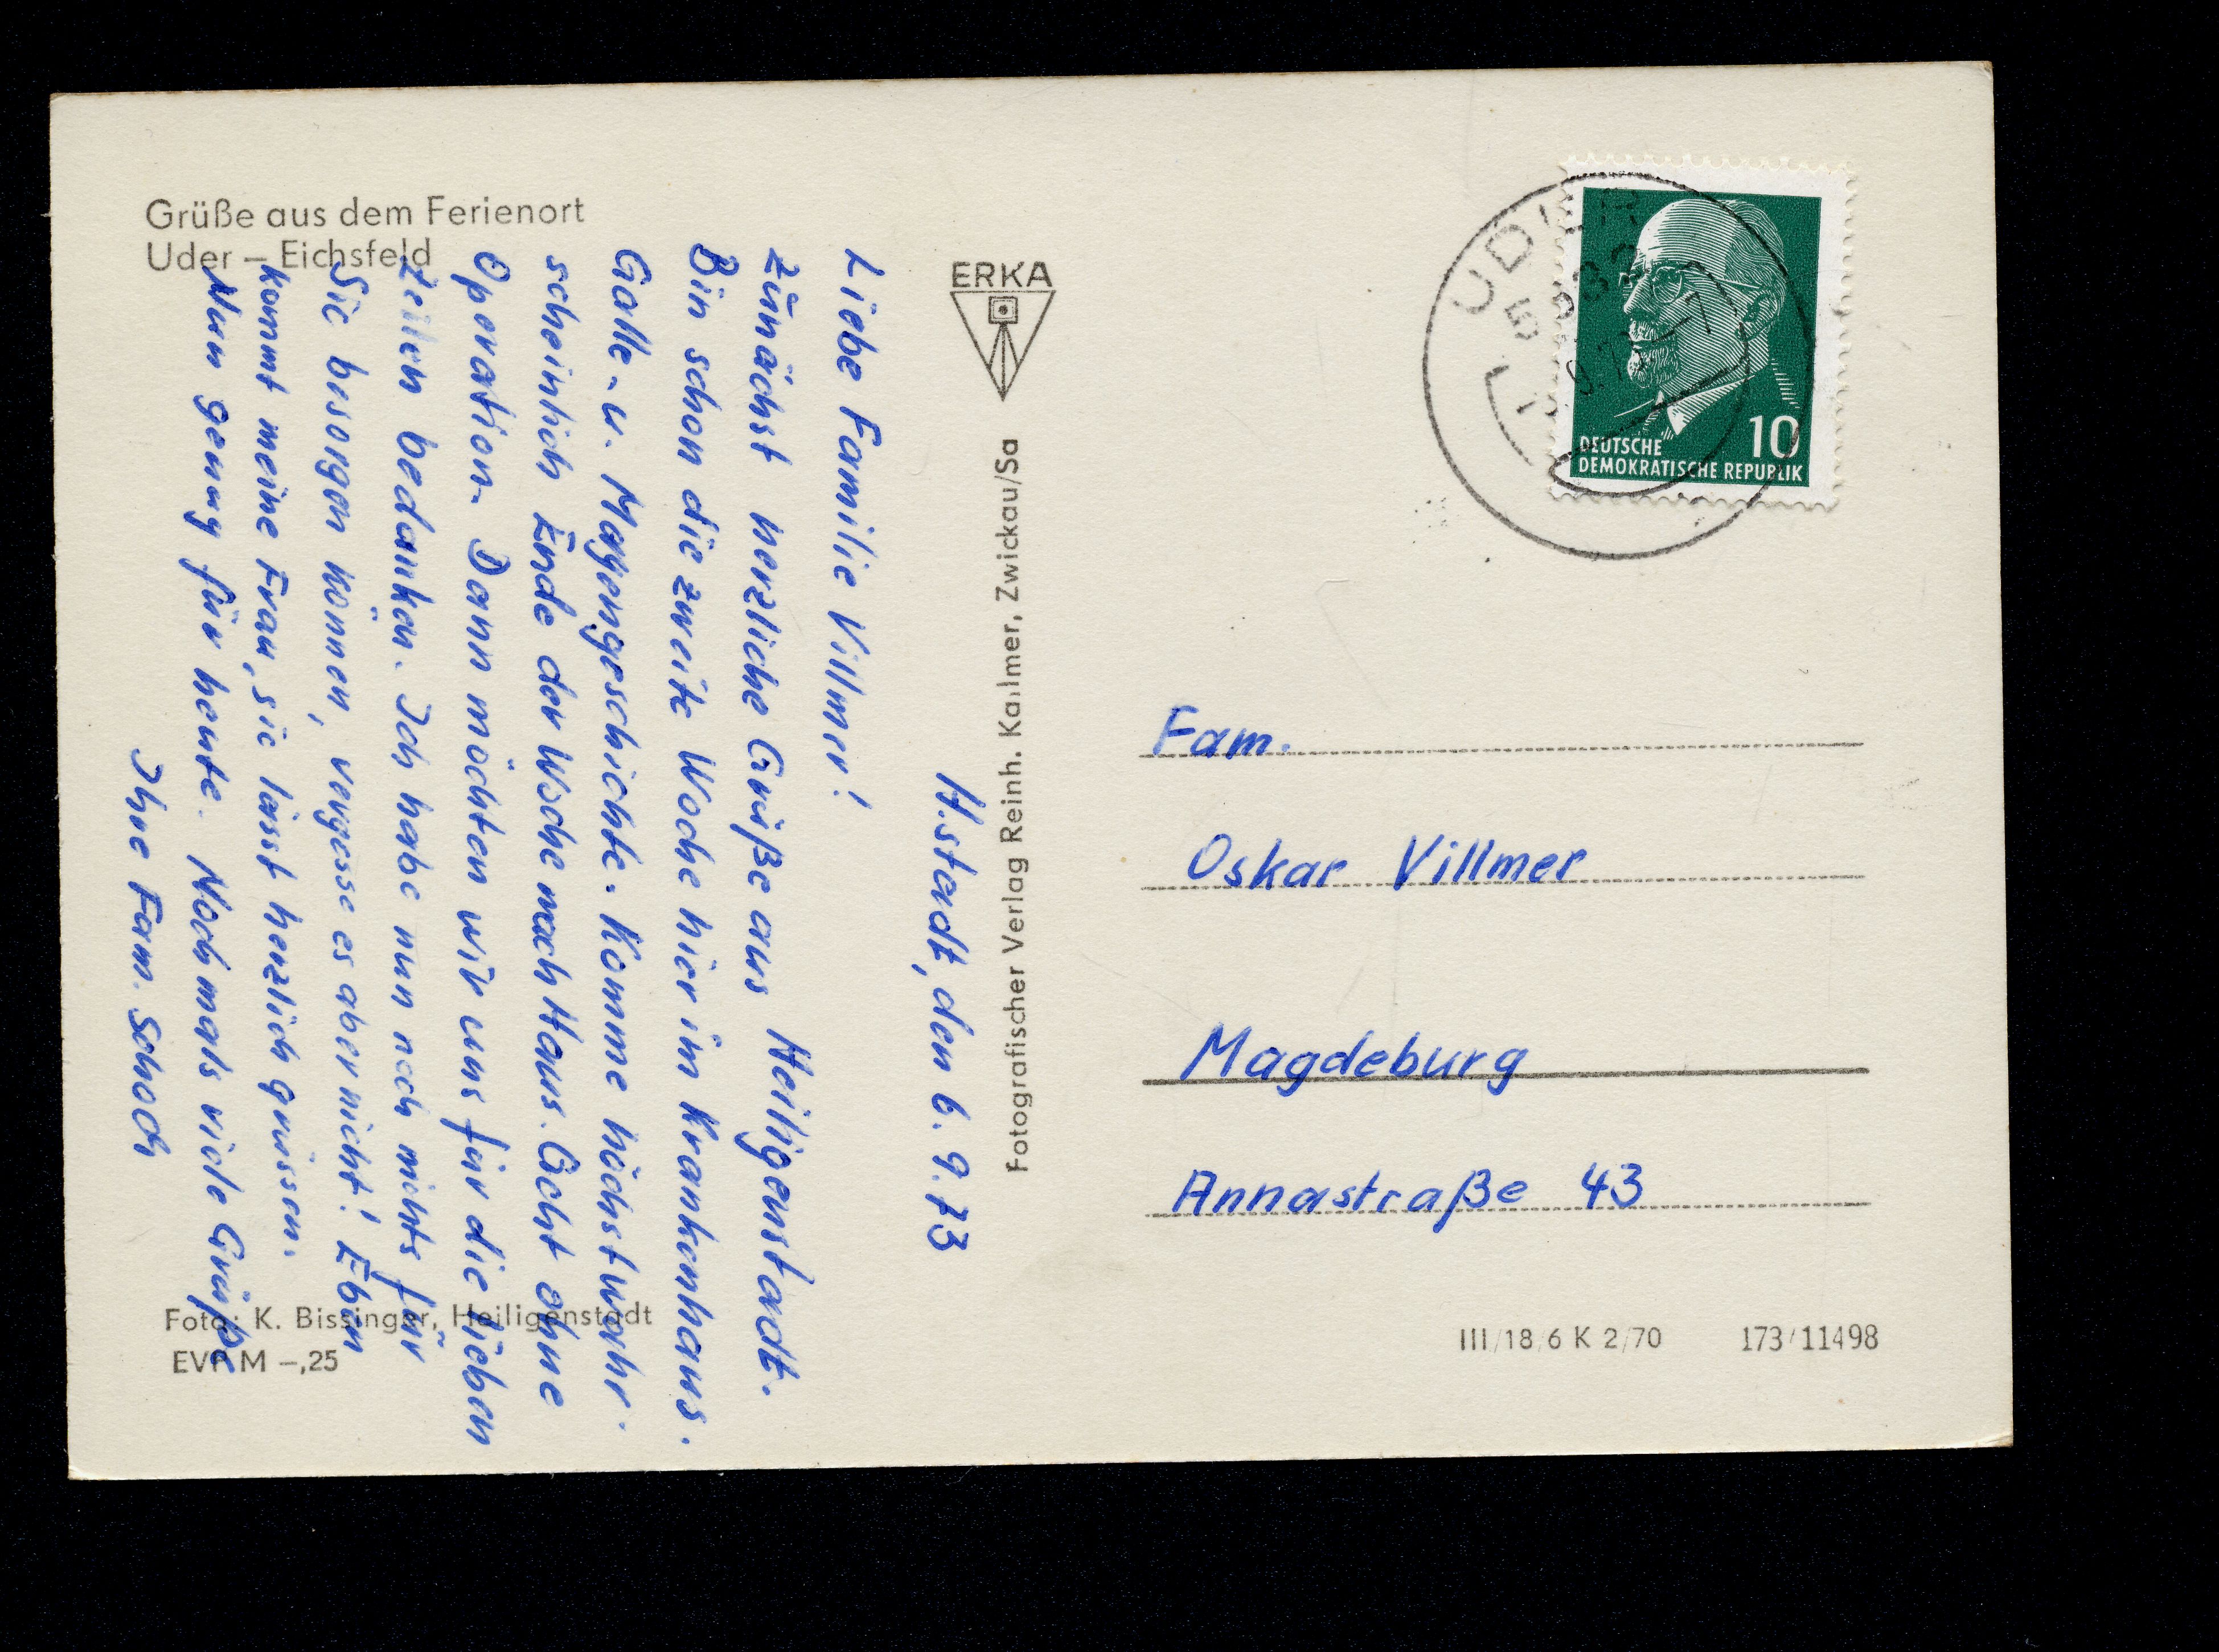 Grüße aus dem Ferienort
Uder – Eichsfeld
H.stadt, den 6. 9. 73
Liebe Familie Villmer!
Zunächst herzliche Grüße aus Heiligenstadt.
Bin schon die zweite Woche hier im Krankenhaus.
Galle- u. Magengeschichte. Komme höchstwahr-
scheinlich Ende der Woche nach Haus. Geht ohne
Operation. Dann möchten wir uns für die lieben
Zeilen bedanken. Ich habe nun noch nichts für
Sie besorgen können, vergesse es aber nicht! Eben
kommt meine Frau, sie lässt herzlich grüssen.
Nun genug für heute. Nochmals viele Grüße
Ihre Fam. Schoch
Foto: K. Bissinger, Heiligenstadt
EVP M –,25
ERKA
Fotografischer Verlag Reinh. Kallmer, Zwickau/Sa
UDER
10
DEUTSCHE
DEMOKRATISCHE REPUBLIK
Fam.
Oskar Villmer
Magdeburg
Annastraße 43
III/18/6 K 2/70 173/11498